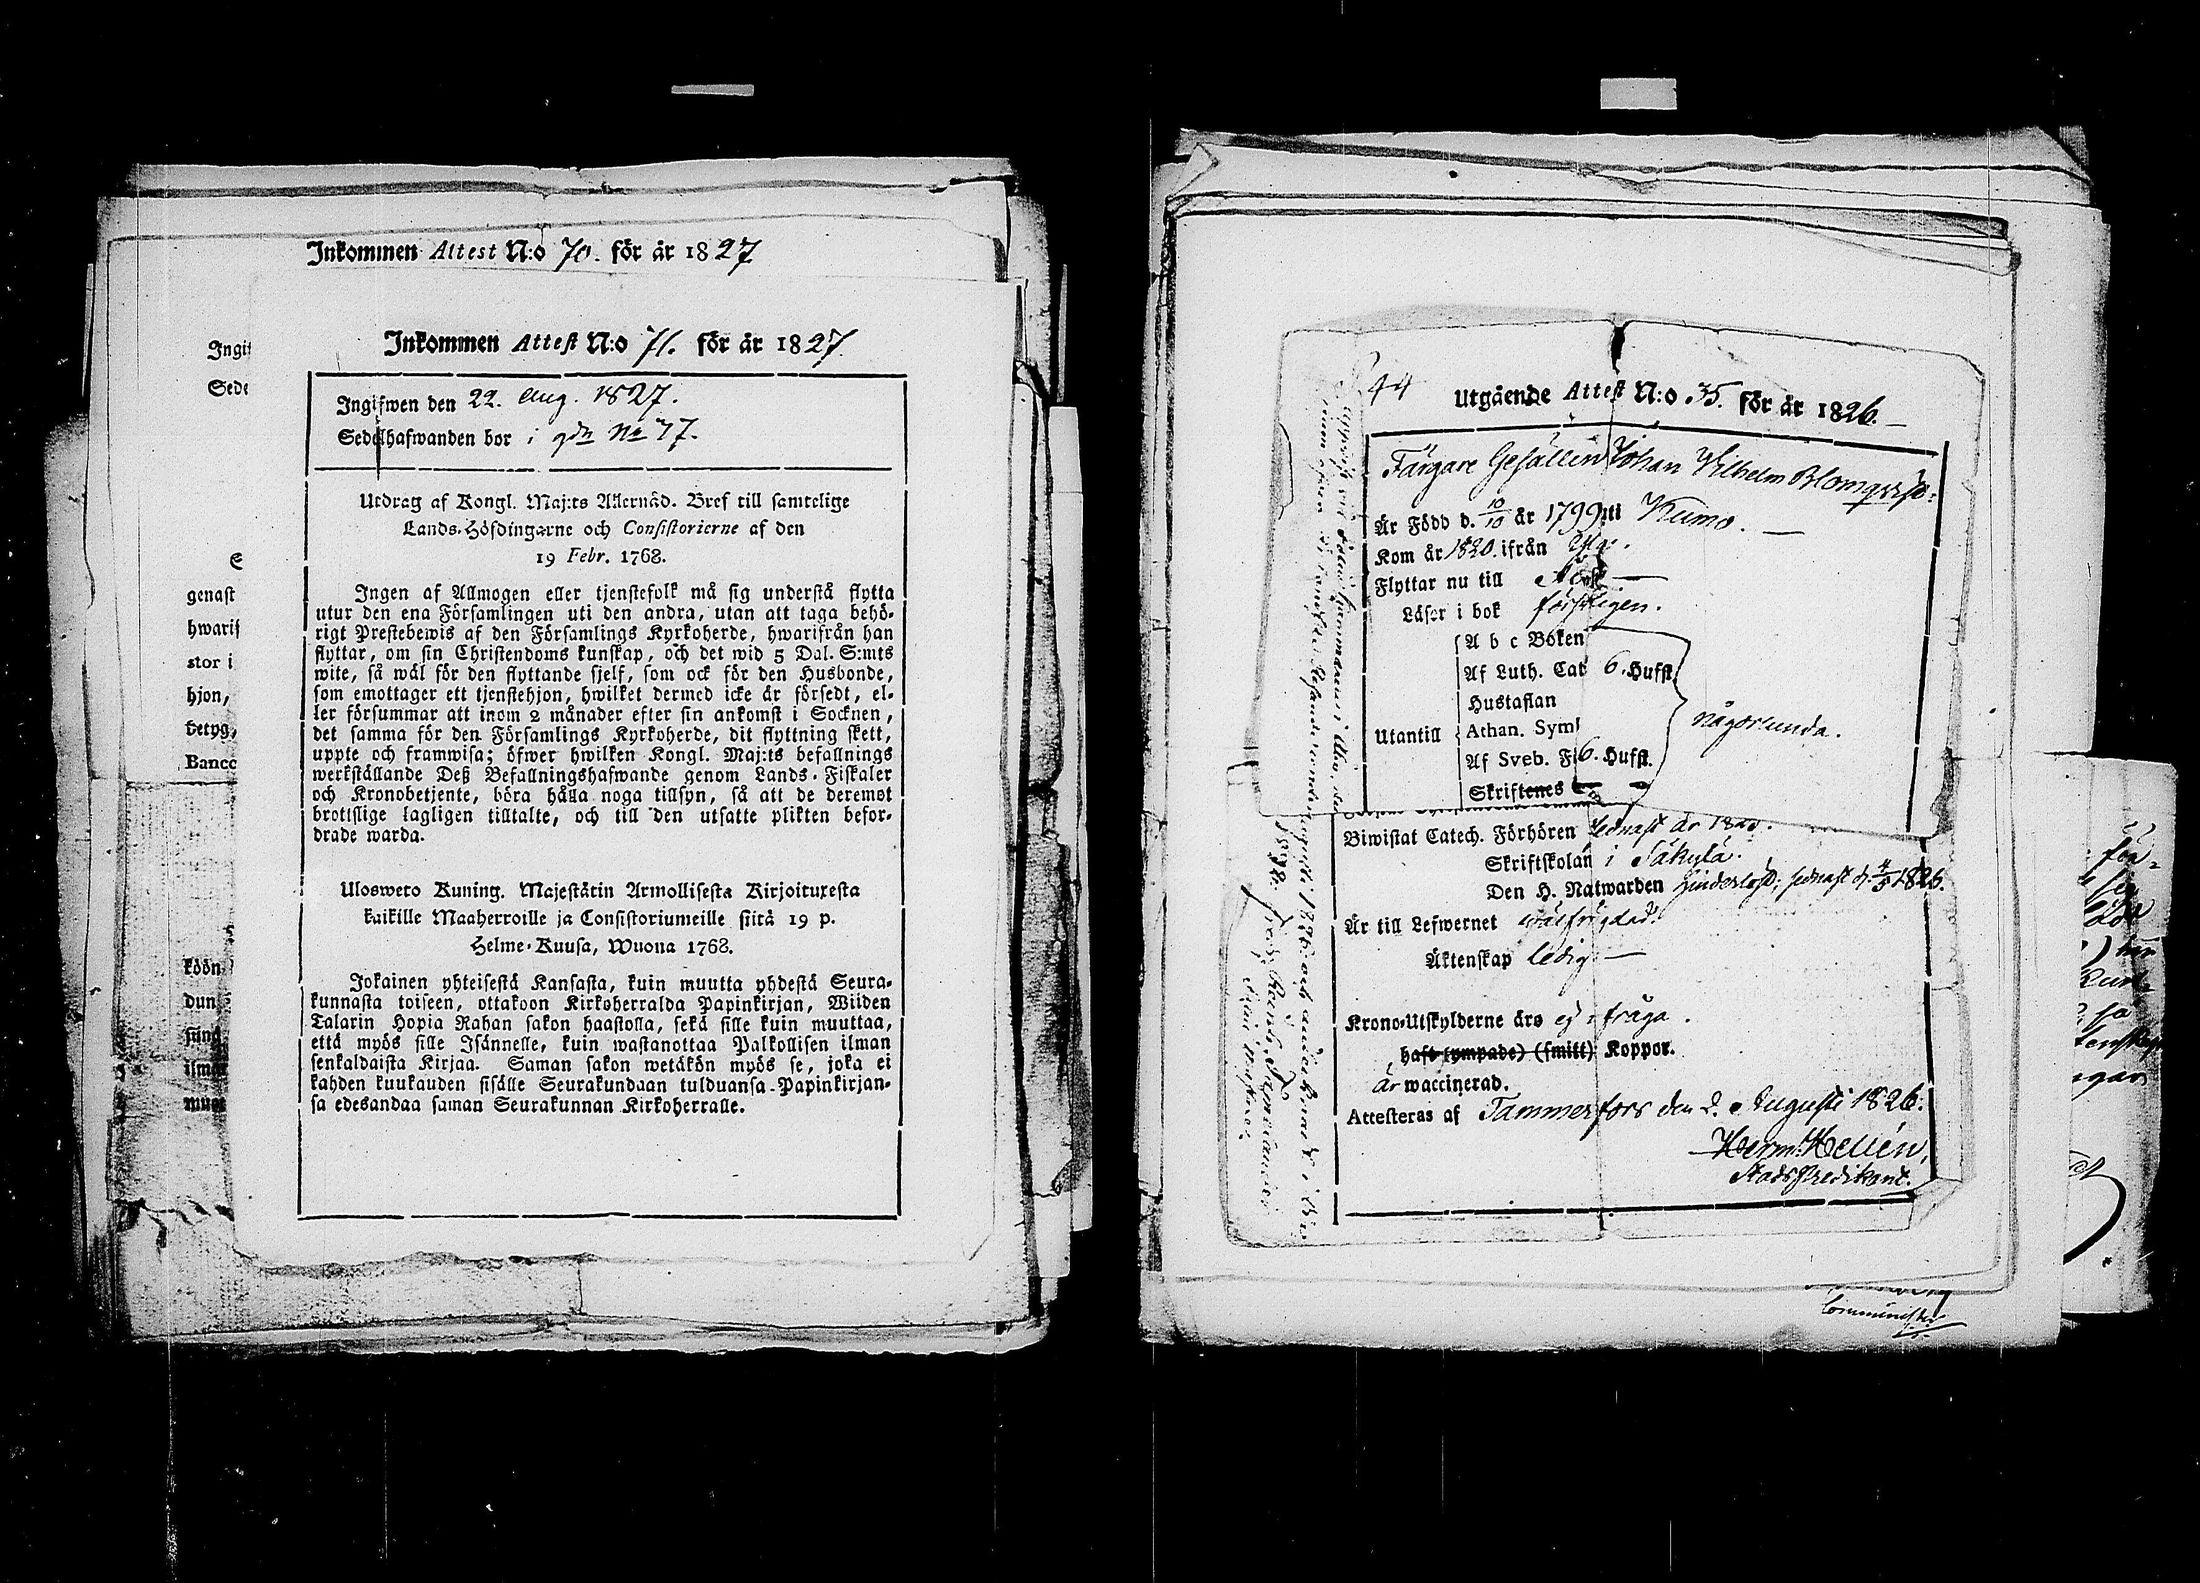 Inkommen Attest N:o 70. för år 1827
Inkommen Attest N:o 71. för år 1827.
Ingifwen den 22. Aug. 1827.
Sedelhafwanden bor i gdn No 77.
Utdrag af Kongl. Maj:ts Allernåd. Bref till samtelige
Lands-Höfdingarne och Consistorierne af den
19 Febr. 1768.
Ingen af Allmogen eller tjenstefolk må sig understå flytta
utur den ena Församlingen uti den andra, utan att taga behö-
rigt Prestebewis af den Församlings Kyrkoherde, hwarifrån han
flyttar, om sin Christendoms kunskap, och det wid 5 Dal. S:mts
wite, så wäl för den flyttande sjelf, som ock för den Husbonde,
som emottager ett tjenstehjon, hwilket dermed icke är försedt, el-
ler försummar att inom 2 månader efter sin ankomst i Socknen,
det samma för den Församlings Kyrkoherde, dit flyttning skett,
uppte och framwisa; öfwer hwilken Kongl. Maj:ts befallnings
werkställande Deß Befallningshafwande genom Lands-Fiskaler
och Kronobetjente, böra hålla noga tillsyn, så att de deremot
brottslige lagligen tilltalte, och till den utsatte plikten befor-
drade warda.
Ulosweto Kuning. Majestätin Armollisesta Kirjoituxesta
kaikille Maaherroille ja Consistoriumeille siitä 19 p.
Helme-Kuusa, Wuona 1768.
Jokainen yhteisestä Kansasta, kuin muutta yhdestä Seura-
kunnasta toiseen, ottakoon Kirkoherralda Papinkirjan, Wiiden
Talarin Hopia Rahan sakon haastolla, sekä sille kuin muuttaa,
että myös sille Isännelle, kuin wastanottaa Palkollisen ilman
senkaldaista Kirjaa. Saman sakon wetäkön myös se, joka ei
kahden kuukauden sisälle Seurakundaan tulduansa Papinkirjan-
sa edesandaa saman Seurakunnan Kirkoherralle.
Ingif
Sede
genast
hwarif
stor i
hjon,
betyg,
Banco
44
Utgående Attest N:o 35. för år 1826.
Färgare Gesällen Johan Vilhelm Blomqvist
Är Född d. 10/10 år 1799 uti Kumo.
Kom år 1820. ifrån
Flyttar nu till Åbo
Läser i bok försvligen.
A b c Boken
Af Luth. Cat 6. Hufst.
Hustaflan
Utantill Athan. Sym
någorlunda.
Af Sveb. F 6. Hufst.
Skriftenes
Biwistat Catech. Förhören sednast år
Skriftskolan i Säkylä.
Den H. Natwarden hinderlöst, sednast d. 4/5 1826.
Är till Lefwernet wälfrägdad.
Äktenskap ledig
Krono-Utskylderne äro ej i fråga.
haft (ympade) (smitt) Koppor.
är waccinerad.
Attesteras af Tammerfors den 2. Augusti 1826.
Herm: Hellén,
StadsPredikant.
Comminister